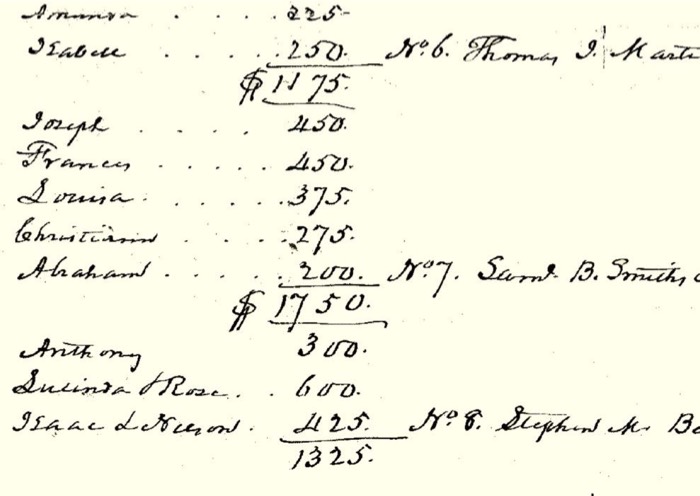 Amanda . . . . 225
Isabell . . . . 250. No. 6. Thomas I. Marti
$ 1175.
Joseph . . . . 450.
Frances . . . . 450.
Louisa . . . . 375.
Christiann . . . 275.
Abraham . . . . 200. No. 7. Saml. B. Smiths
$ 1750.
Anthony 300.
Lucinda & Rose . . 600.
Isaac & Nelson . 425. No. 8. Stephen M. Bo
1325.